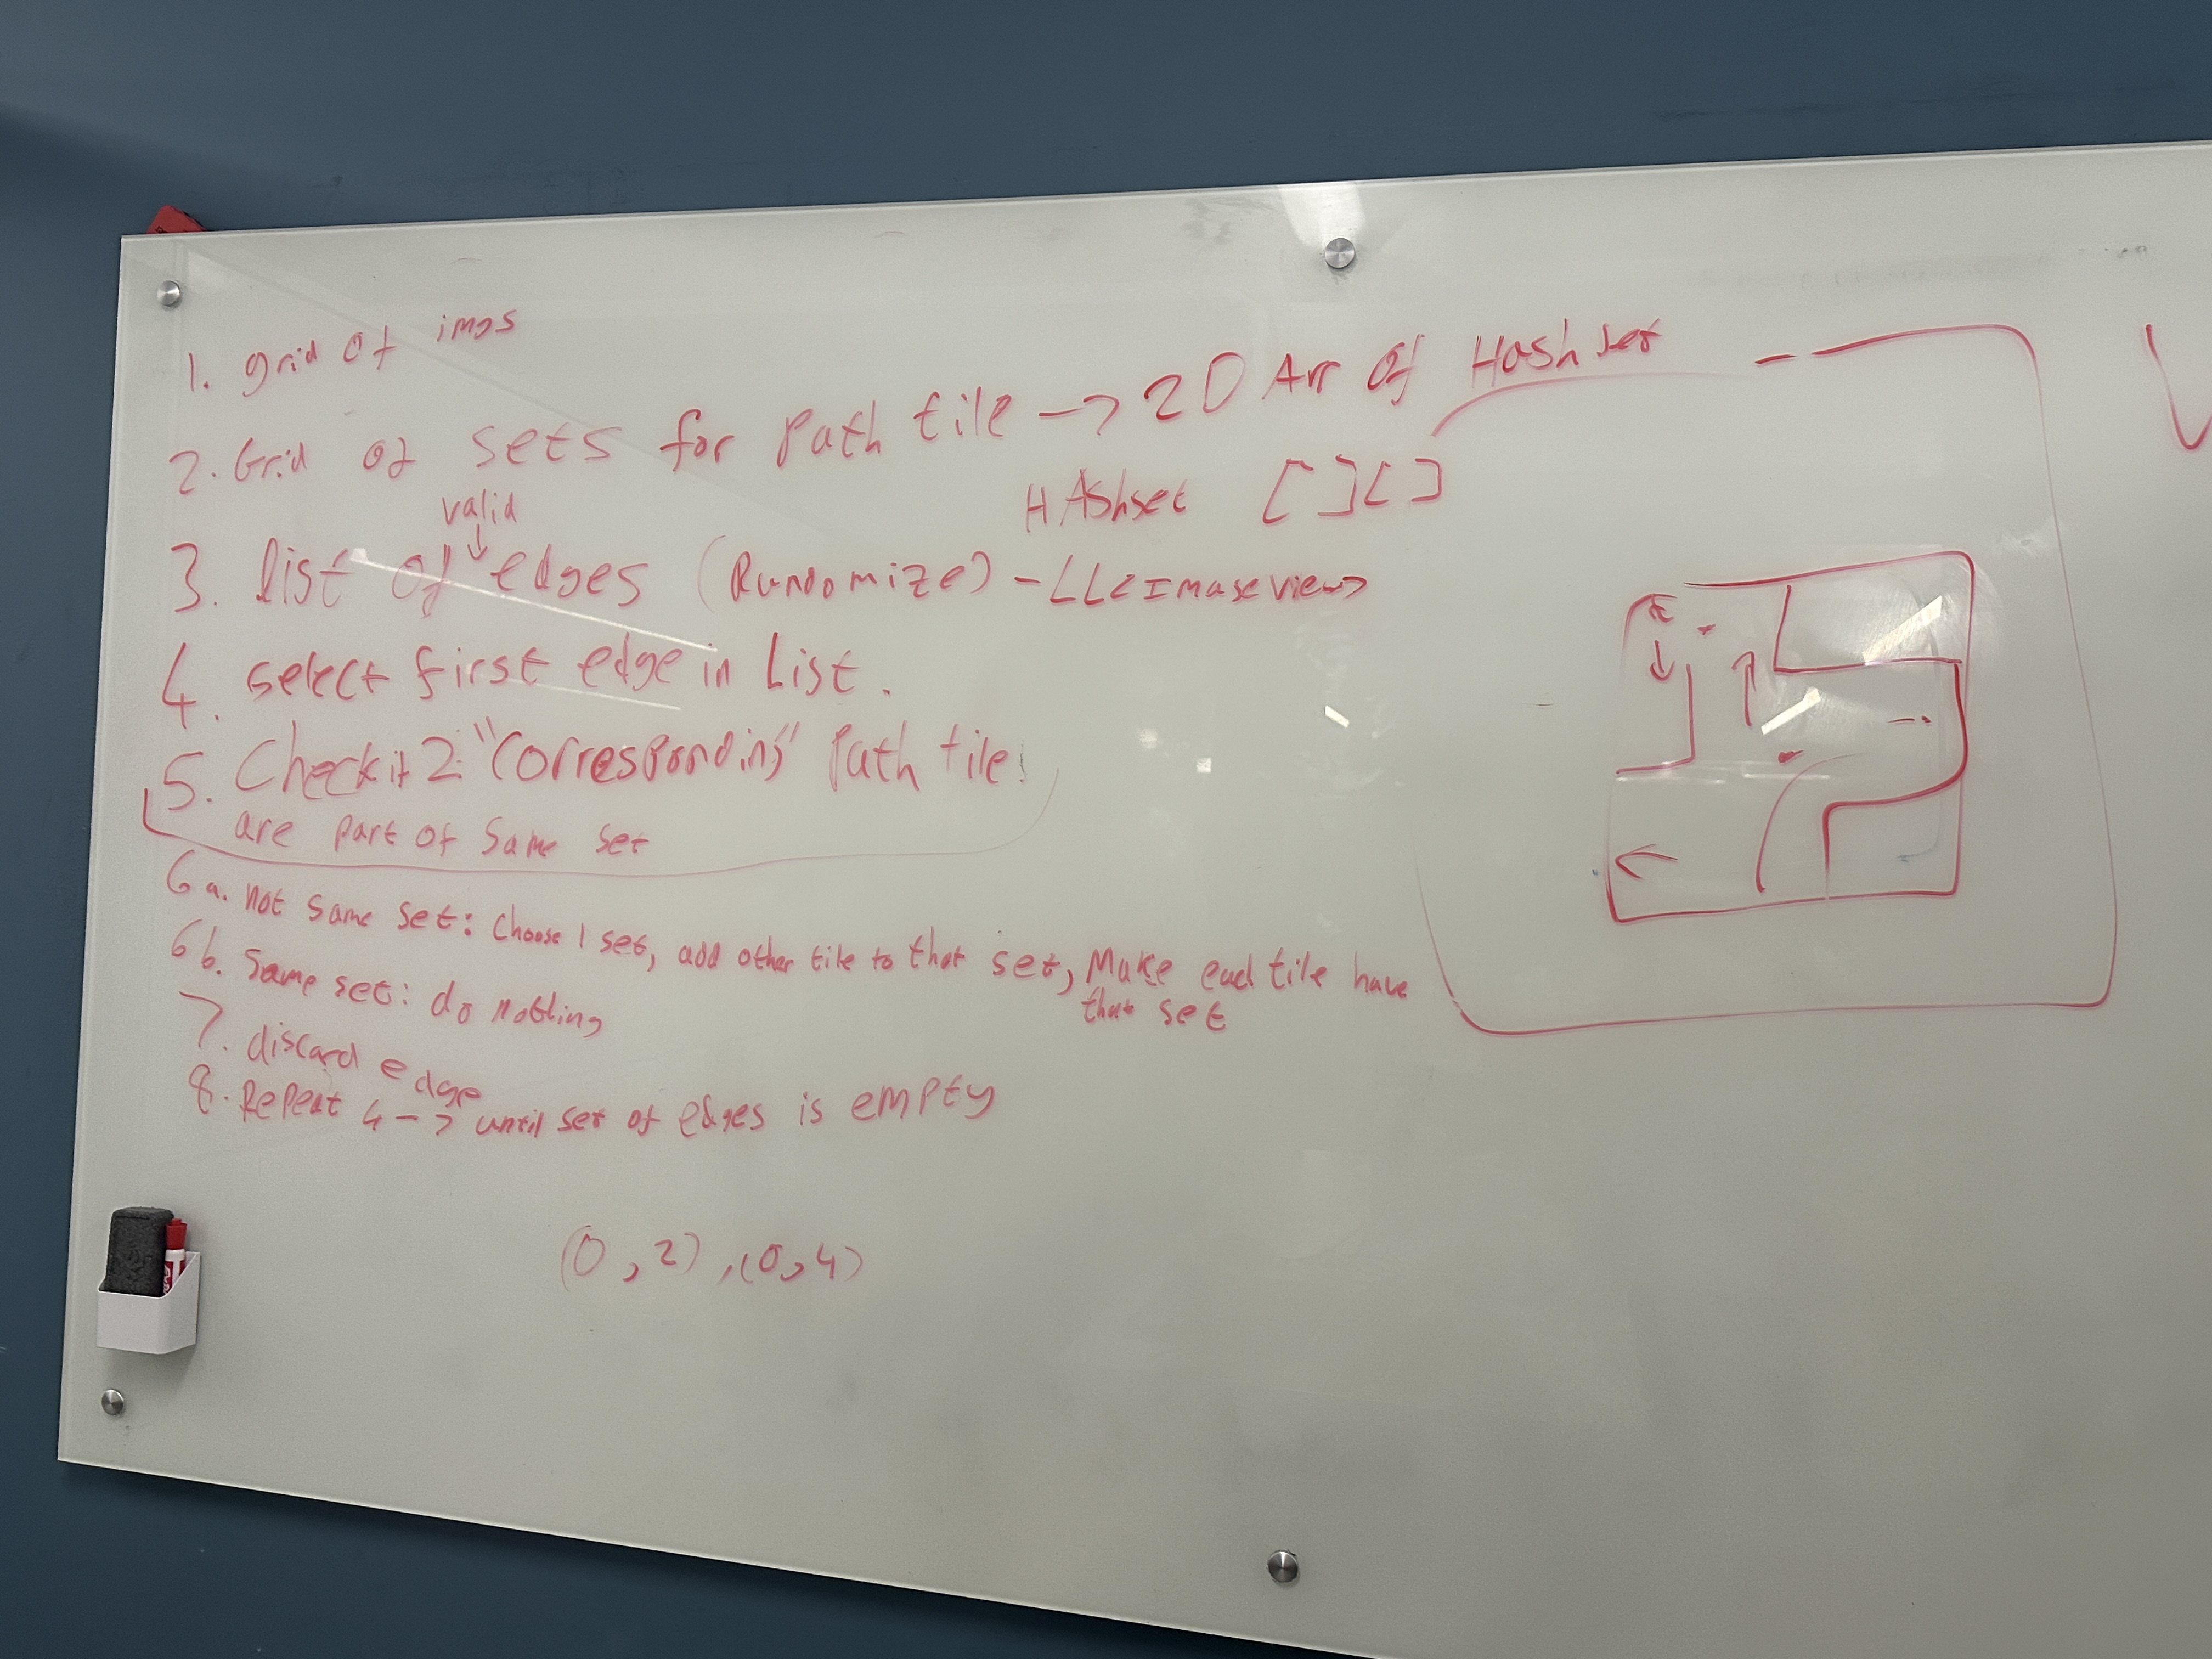 1. grid of imgs
2. Grid of sets for Path tile -> 2D Arr Of Hashset
HAshset [][]
valid
3. list of edges (Randomize) - LL<Imageview>
4. select first edge in List.
5. Check if 2 "Corresponding" Path tiles
are part of Same set
6a. not same set: Choose 1 set, add other tile to that set, Make each tile have
that set
6b. Same set: do nothing
7. discard edge
8. Repeat 4-7 until set of edges is empty
(0,2),(0,4)